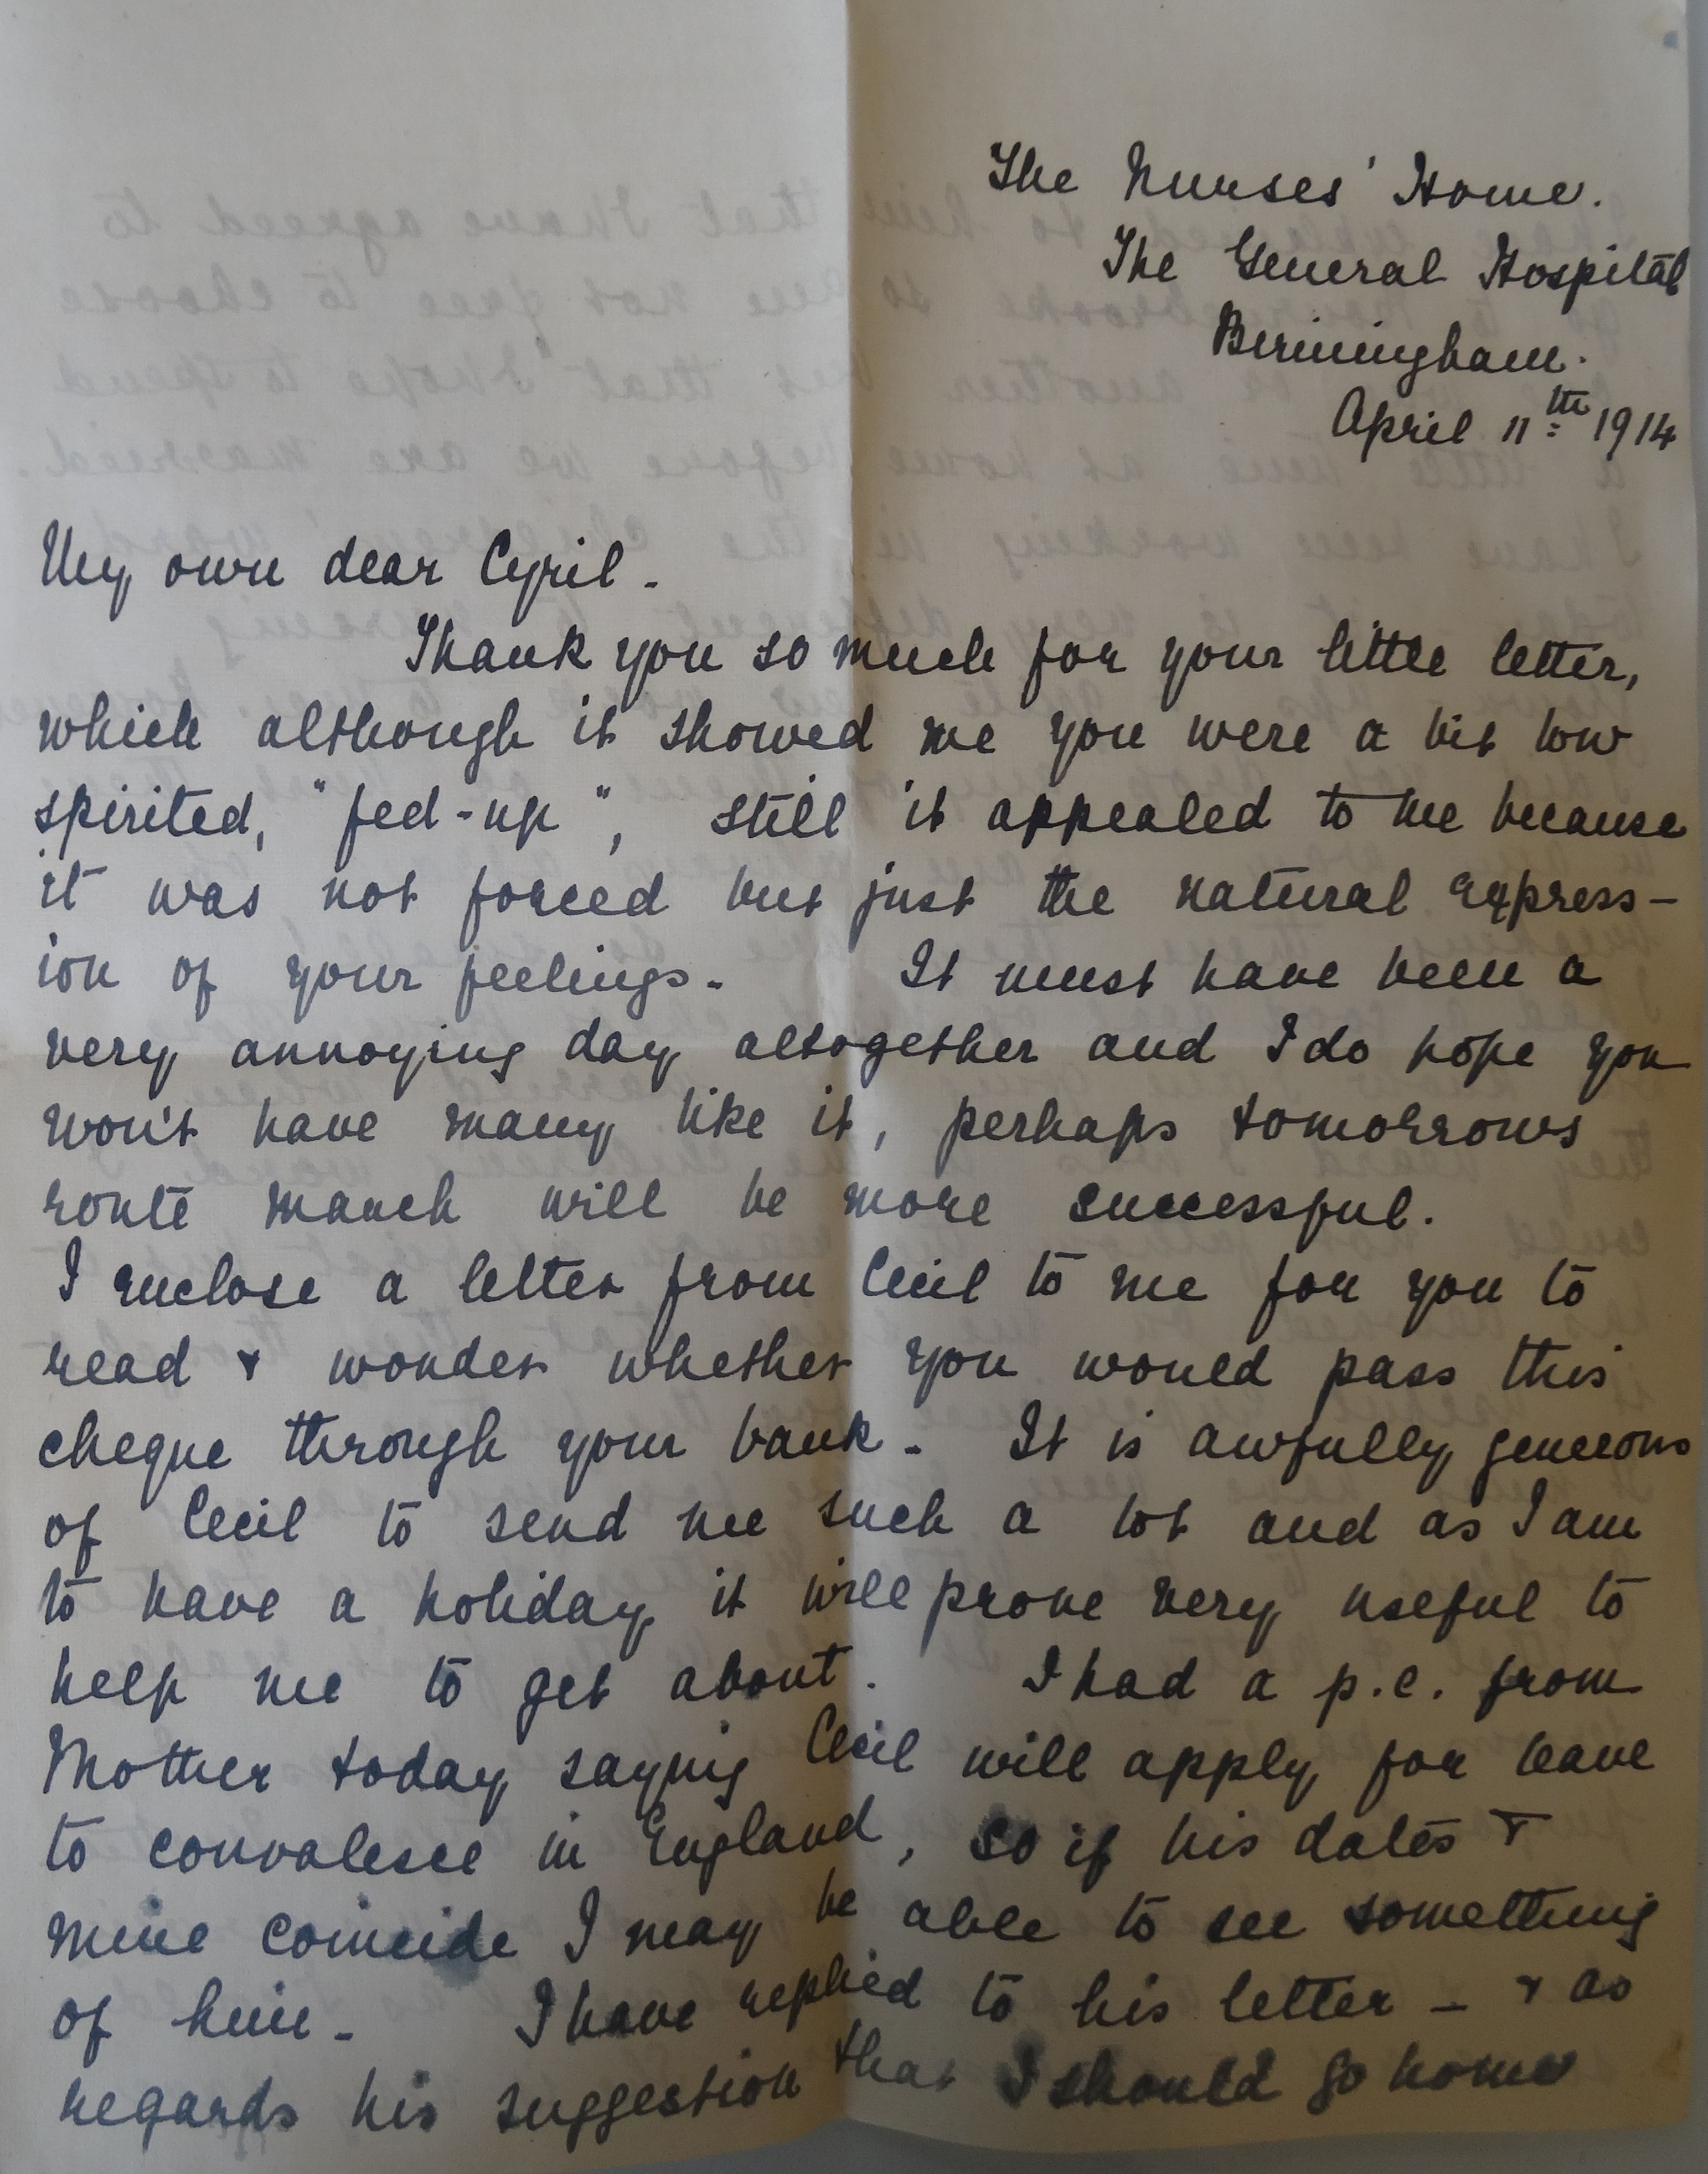 The Nurses' Home.
The General Hospital
Birmingham.
April 11th 1914
My own dear Cyril -
Thank you so much for your little letter,
which although it showed me you were a bit low
spirited, "fed-up", still it appealed to me because
it was not forced but just the natural express-
ion of your feelings. It must have been a
very annoying day altogether and I do hope you
won't have many like it, perhaps tomorrows
route march will be more successful.
I enclose a letter from Cecil to me for you to
read & wonder whether you would pass this
cheque through your bank. It is awfully generous
of Cecil to send me such a lot and as I am
to have a holiday it will prove very useful to
help me to get about. I had a p.c. from
Mother today saying Cecil will apply for leave
to convalesce in England, so if his dates &
mine coincide I may be able to see something
of him - I have replied to his letter - & as
regards his suggestion that I should go home